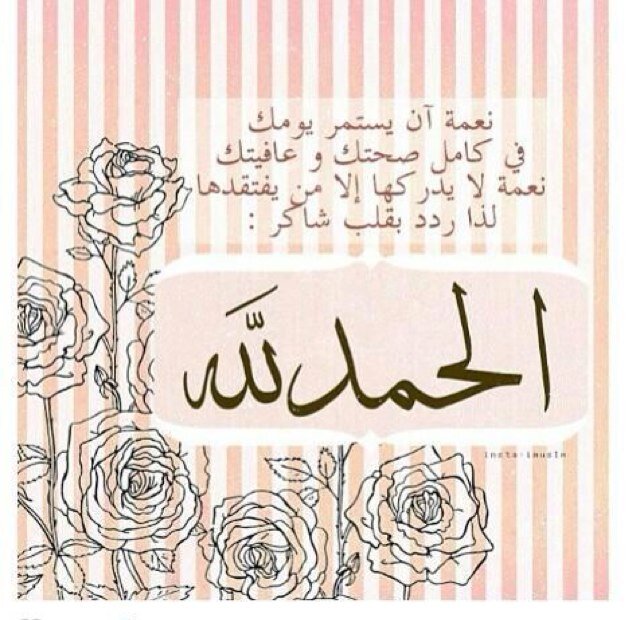 نعمة آن يستمر يومك
في كامل صحتك و عافيتك
نعمة لا يدركها إلا من يفتقدها
لذا ردد بقلب شاكر :
الحمدلله
insta:imusim